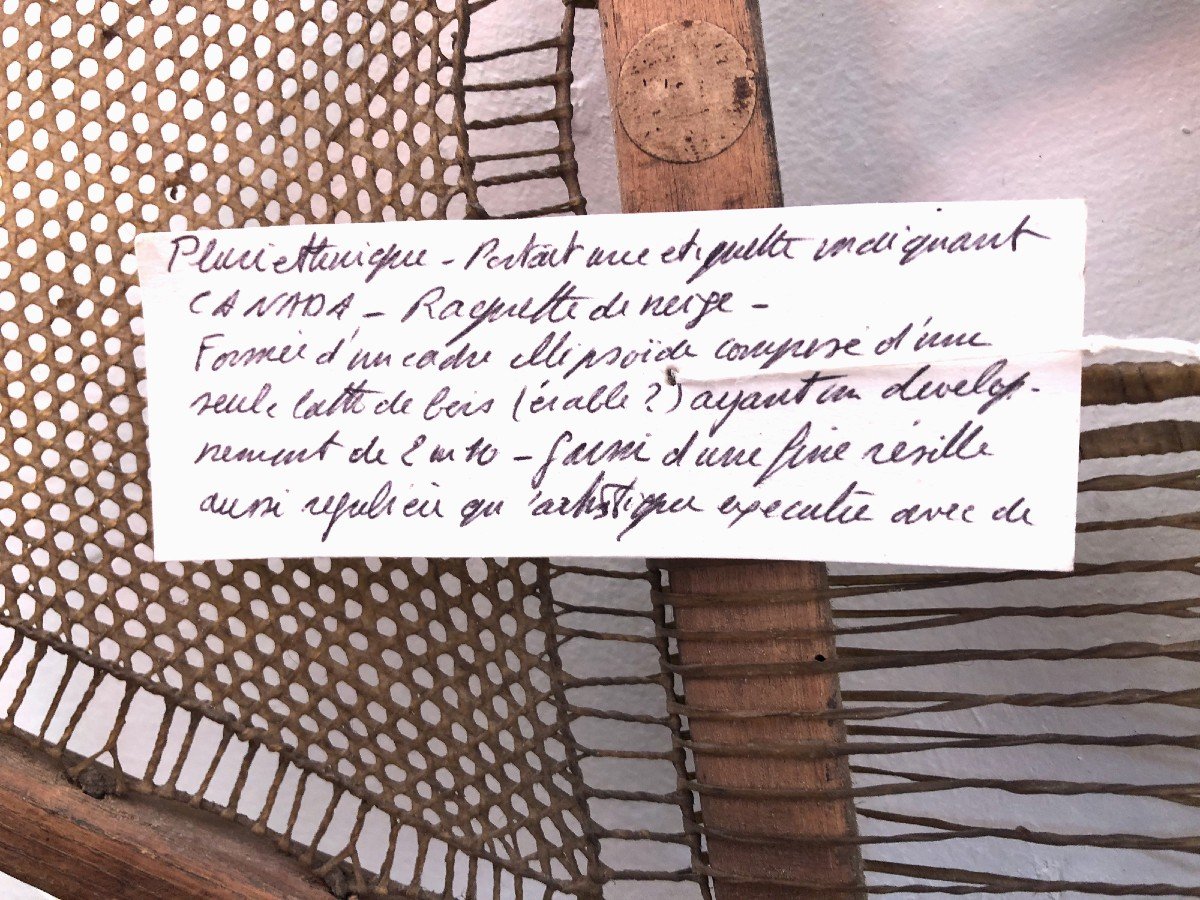 Pluriethnique - Portait une etiquette indiquant
CANADA - Raquette de neige -
Formée d'un cadre ellipsoïde compose d'une
seule latte de bois (érable ?) ayant un develop-
nement de 2m10 - Garni d'une fine résille
aussi regulière qu'artistique executée avec de